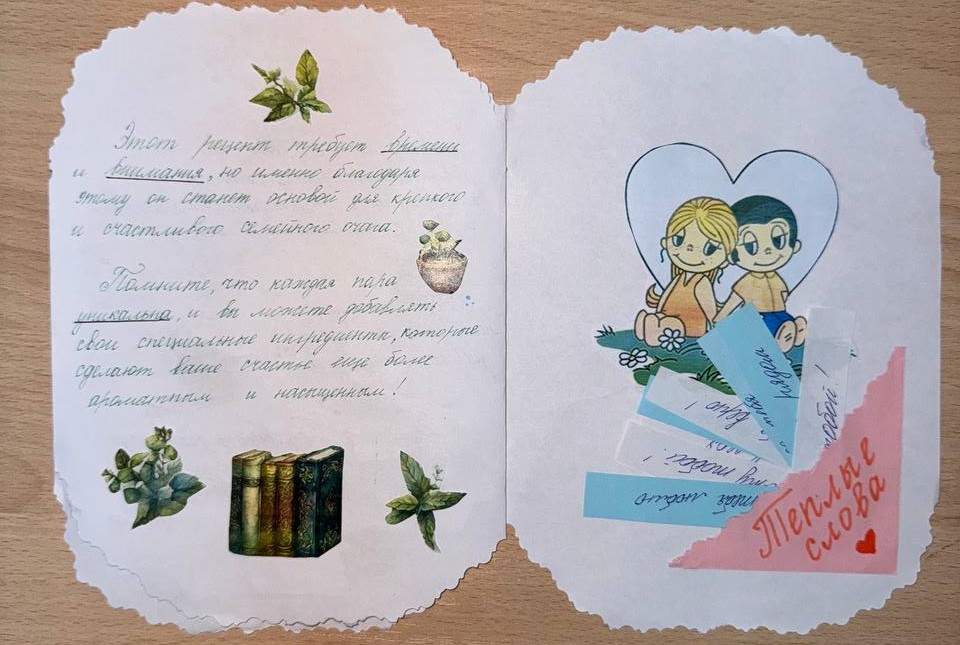 Этот рецепт требует времени
и внимания, но именно благодаря
этому он станет основой для крепкого
и счастливого семейного очага.
Помните, что каждая пара
уникальна, и вы можете добавлять
свои специальные ингредиенты, которые
сделают ваше счастье еще более
ароматным и насыщенным!
рядом
верю!
тобой!
тобой!
люблю
Теплые
слова